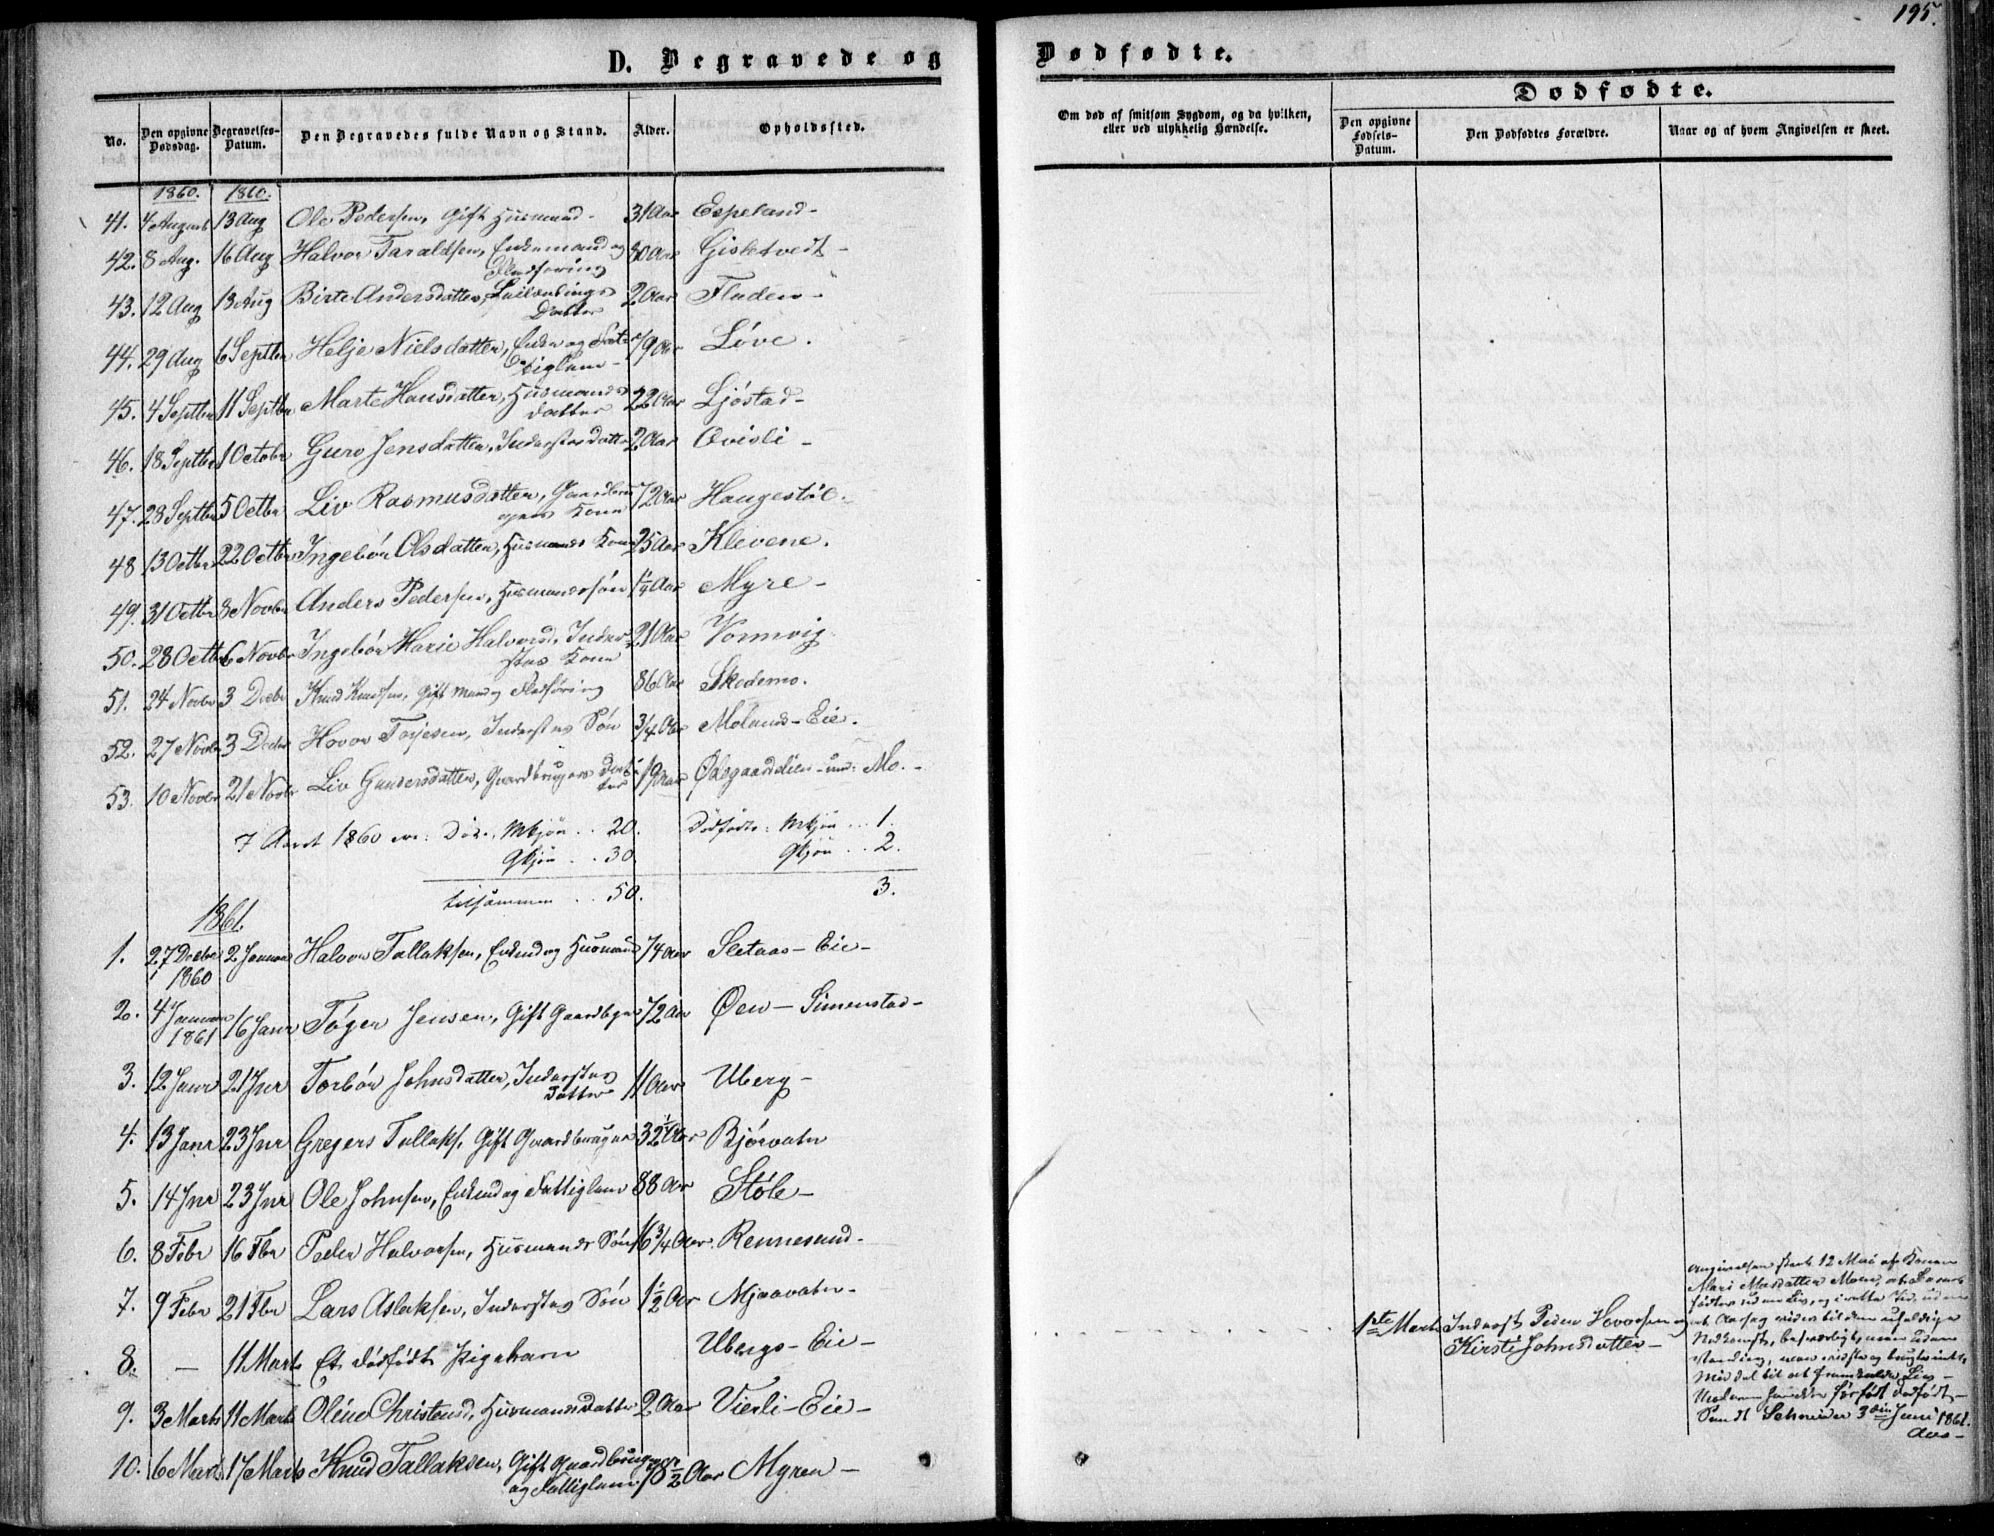 195.
D. Begravede og Dødfødte.
No. Den opgivne Dødsdag. Begravelses-Datum. Den Begravedes fulde Navn og Stand. Alder. Opholdssted.
Om død af smitsom Sygdom, og da hvilken, eller ved ulykkelig Hændelse.
Dødfødte.
Den opgivne Fødsels-Datum. Den Dødfødtes Forældre. Naar og af hvem Angivelsen er skeet.
1860. 1860.
41. 4 August 13 Aug Ole Pedersen, Gift Husmand - 31 Aar Espeland -
42. 8 Aug. 16 Aug Halvor Taraldsen, Enkemand og 80 Aar Gisletvedt -
Fledføring
43. 12 Aug 13 Aug Birte Andersdatter, Leilændings 2 Aar Fladen -
Datter
44. 29 Aug 6 Septbr Helje Nielsdatter, Enke og Fat- 79 Aar Løve.
tiglem -
45. 4 Septbr 11 Septbr Marte Hansdatter, Husmands 22 Aar Ljøstad -
datter
46. 18 Septbr 1 Octobr Guro Jensdatter, Inderstes datter 2 Aar Qvisli -
47. 28 Septbr 5 Octbr Liv Rasmusdatter, Gaardbru 72 Aar Haugestøl.
gers Kone
48 13 Octbr 22 Octbr Ingebør Olsdatter, Husmands Kone 25 Aar Klevene.
49. 31 Octbr 8 Novbr Anders Pedersen, Husmandssøn 1/4 Aar Myre -
50. 28 Octbr 6 Novbr Ingebør Marie Halvorsd. Inder- 21 Aar Vormvig
stes Kone
51. 24 Novbr 3 Decbr Knud Knudsen, Gift Mand og Fledføring 86 Aar Skedemo.
52. 27 Novbr 3 Decbr Hovor Torjesen, Inderstes Søn 3/4 Aar Molands - Eie.
53. 10 Novbr 21 Novbr Liv Gundersdatter, Gaardbrugers Dat- 19 Aar Ødegaardslien - und: Mo. -
ter
I Aaret 1860 ere: Døde, Mkjøn .. 20. Dødfødte: Mkjøn ... 1.
Qkjøn .. 30. Qkjøn .. 2.
tilsammen .. 50. 3.
1861.
1. 27 Decbr 2 Januar Halvor Tallaksen, Enkemd og Husmand 74 Aar Sletaas - Eie -
1860
2. 4 Januar 16 Janr Tøger Jensen, Gift Gaardbger 72 Aar Øen - Simenstad -
1861
3. 12 Janr 21 Jnr Torbør Johnsdatter, Inderstes 11 Aar Uberg -
Datter
4. 13 Janr 23 Jnr Gregers Tallaks. Gift Gaardbruger 32 1/2 Aar Bjørvatn
5. 14 Jnr 23 Jnr Ole Johnsen, Enkemd og Fattiglem 88 Aar Støle -
6. 8 Febr 16 Fbr Peder Halvorsen, Husmands Søn 16 3/4 Aar. Rennesund -
7. 9 Febr 21 Fbr Lars Aslaksen, Inderstes Søn 1 1/2 Aar Mjaavatn -
8. - 11 Marts Et dødfødt Pigebarn Ubergs - Eie -
1ste Marts Inderst Peder Hovorsen og
Kirsti Johnsdatter -
Angivelsen skeet 12 Mai af Konen
Mari Madsdatter Moen, at Barnet
fødtes uden Liv, og i rette Tid, uden
at Aarsag vides til den uheldige
Nedkomst,
Middel til at fremkalde Liv -
dødfødt -
Sundt Schnider 3die Juni 1861.
9. 3 Marts 11 Marts Oline Christensd, Husmandsdatter 2 Aar Vierli - Eie -
10. 6 Marts 17 Marts Knud Tallaksen, Gift Gaardbruger 78 1/2 Aar Myren -
og Fattiglem